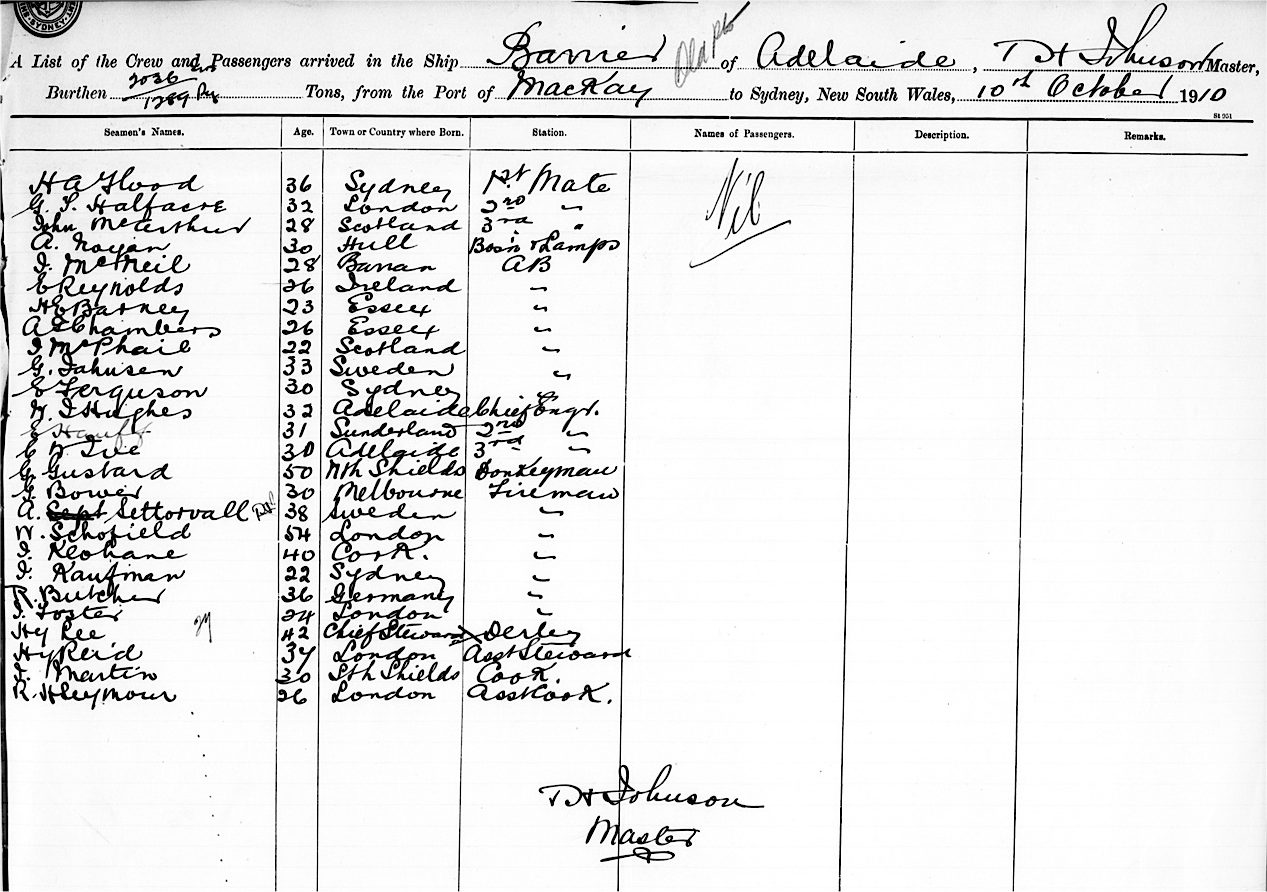 SYDNEY
A List of the Crew and Passengers arrived in the Ship Barrier of Adelaide, T H Johnson Master,
Burthen 2036 / 1289 Tons, from the Port of MacKay to Sydney, New South Wales, 10th October 1910
St 951
Seamen's Names. Age. Town or Country where Born. Station. Names of Passengers. Description. Remarks.
H A Flood 36 Sydney 1st Mate Nil
G. S. Halfacre 32 London 2nd "
John McArthur 28 Scotland 3rd "
A. Nogan 30 Hull Bos'n & Lamps
J. McNeil 28 Barran AB
E Reynolds 26 Ireland "
H E Barney 23 Essex "
A E Chambers 26 Essex "
J McPhail 22 Scotland "
G. Jahnsen 33 Sweden "
E Ferguson 30 Sydney "
W. J Hughes 32 Adelaide Chief Engr.
E 31 Sunderland 2nd "
C W Ive 30 Adelaide 3rd "
G. Gustard 50 Nth Shields Donkeyman
G. Bower 30 Melbourne Fireman
A. Settorvall 38 Sweden "
W. Schofield 54 London "
J. Keohane 40 Cork. "
J. Kaufman 22 Sydney "
R. Butcher 36 Germany "
J. Foster 24 London "
Hy Lee 42 Chief Steward x Derby
Hy Reid 37 London Asst Steward
J. Martin 30 Sth Shields Cook.
R. H Seymour 26 London Asst Cook.
T H Johnson
Master